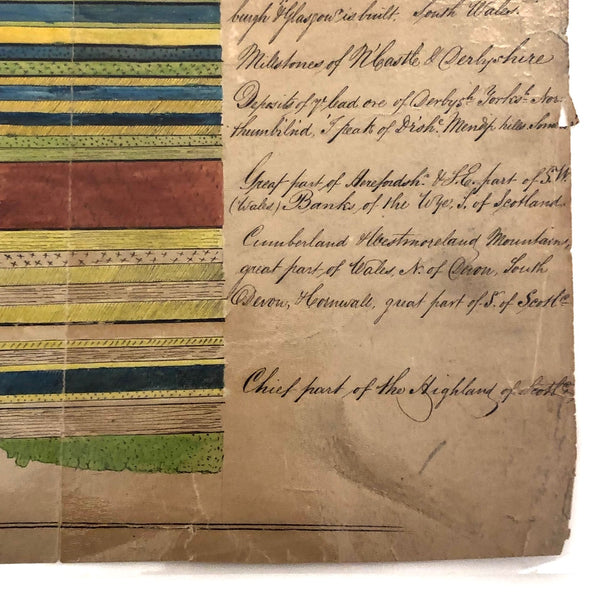 burgh & Glasgow is built. South Wales.
Milestones of N'Castle & Derbyshire
Deposits of ye lead ore of Derbysh. Yorksh. Nor-
thumbl'nd, Peak of D'sh. Mendip hills Som
Great part of Herefordsh. & S.E. part of S.W.
(Wales) Banks of the Wye, S. of Scotland.
Cumberland & Westmoreland Mountains,
great part of Wales, N. of Devon, South
Devon, & Cornwale, great part of S. of Scotld
Chief part of the Highland of Scotld